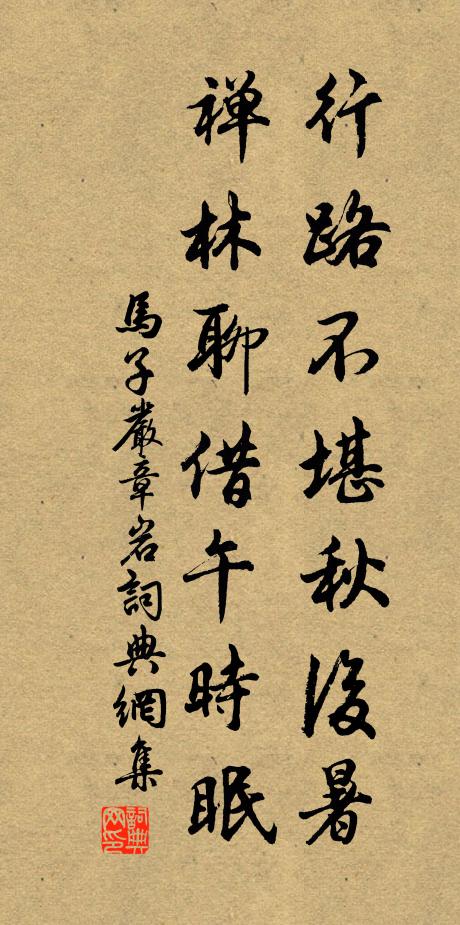 行路不堪秋後暑
禅林聊借午時眠
馬子嚴章岩詞典網集
詞典網印